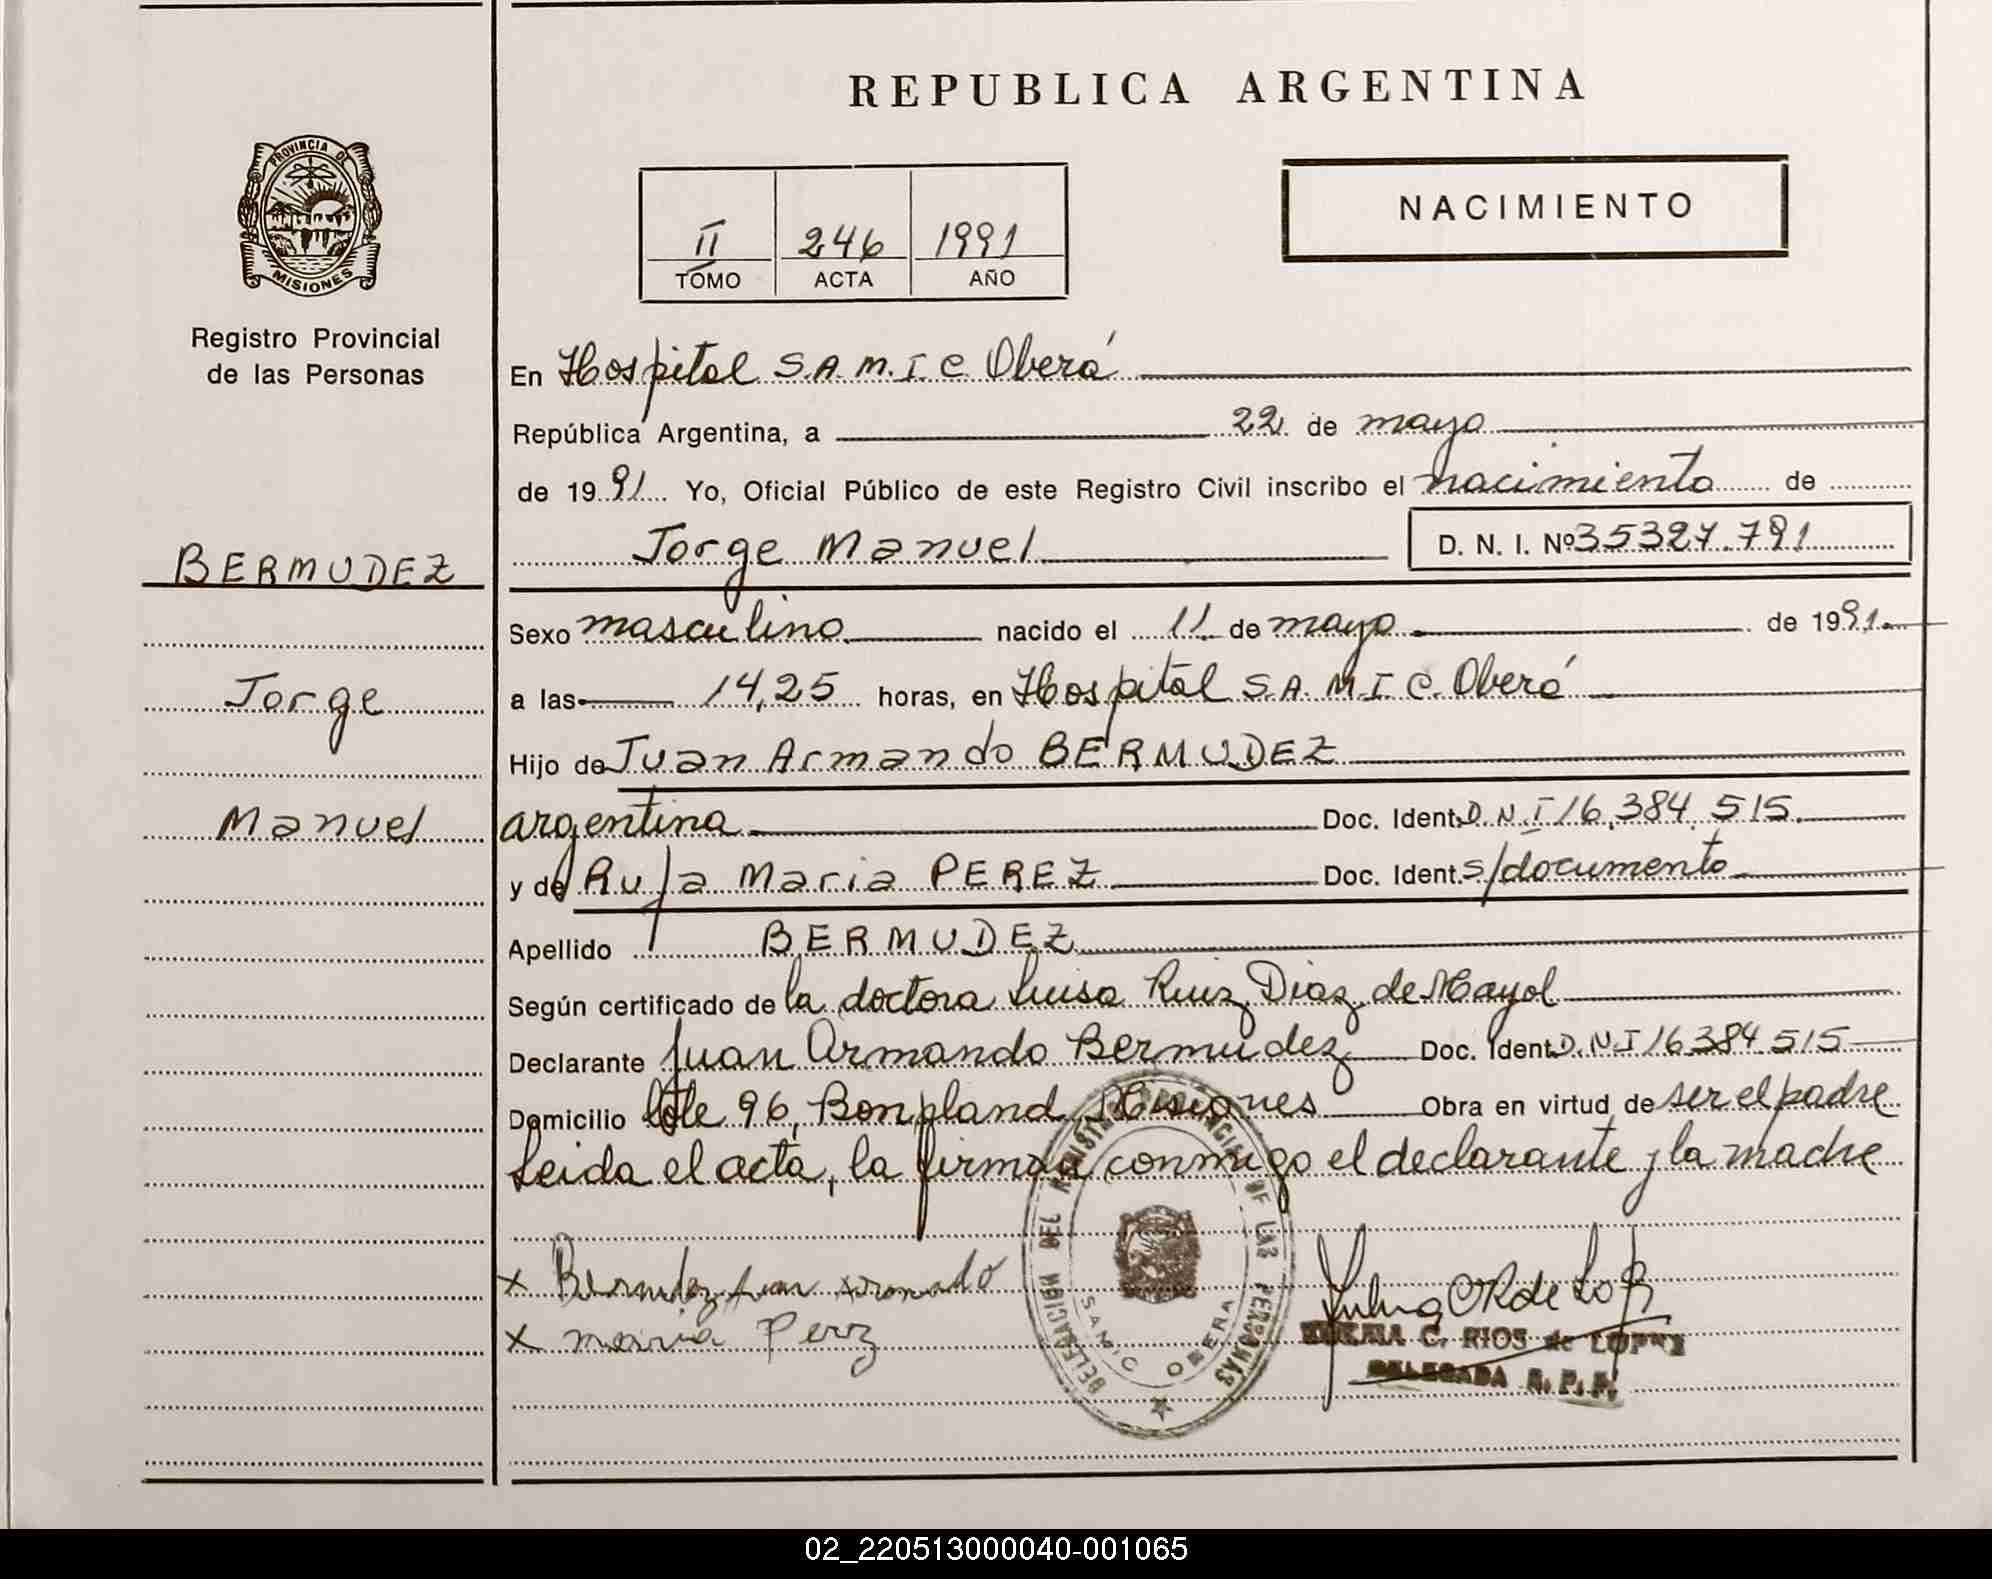 REPUBLICA ARGENTINA
PROVINCIA DE
MISIONES
Registro Provincial
de las Personas
II 246 1991
TOMO ACTA AÑO
NACIMIENTO
BERMUDEZ
Jorge
Manuel
En Hospital S.A.M.I.C Oberá
República Argentina, a 22 de mayo
de 1991 Yo, Oficial Público de este Registro Civil inscribo el nacimiento de
Jorge Manuel D. N. I. Nº 35327.791
Sexo masculino nacido el 11 de mayo de 1991
a las 14,25 horas, en Hospital S.A.M.I.C. Oberá
Hijo de Juan Armando BERMUDEZ
argentina Doc. Ident. D.N.I 16.384.515.
y de Maria PEREZ Doc. Ident. s/documento
Apellido BERMUDEZ
Según certificado de la doctora Luisa Ruiz Diaz de Mayol
Declarante Juan Armando Bermudez Doc. Ident. D.N.I 16384.515
Domicilio lote 96, Bonpland, Misiones Obra en virtud de ser el padre
Leida el acta, la firman conmigo el declarante y la madre
x Bermudez Juan Armando
x maria Perz
DELEGACION DEL REGISTRO PROVINCIAL DE LAS PERSONAS
SAMIC OBERA
C. RIOS de LOPEZ
DELEGADA R. P. P.
02_220513000040-001065